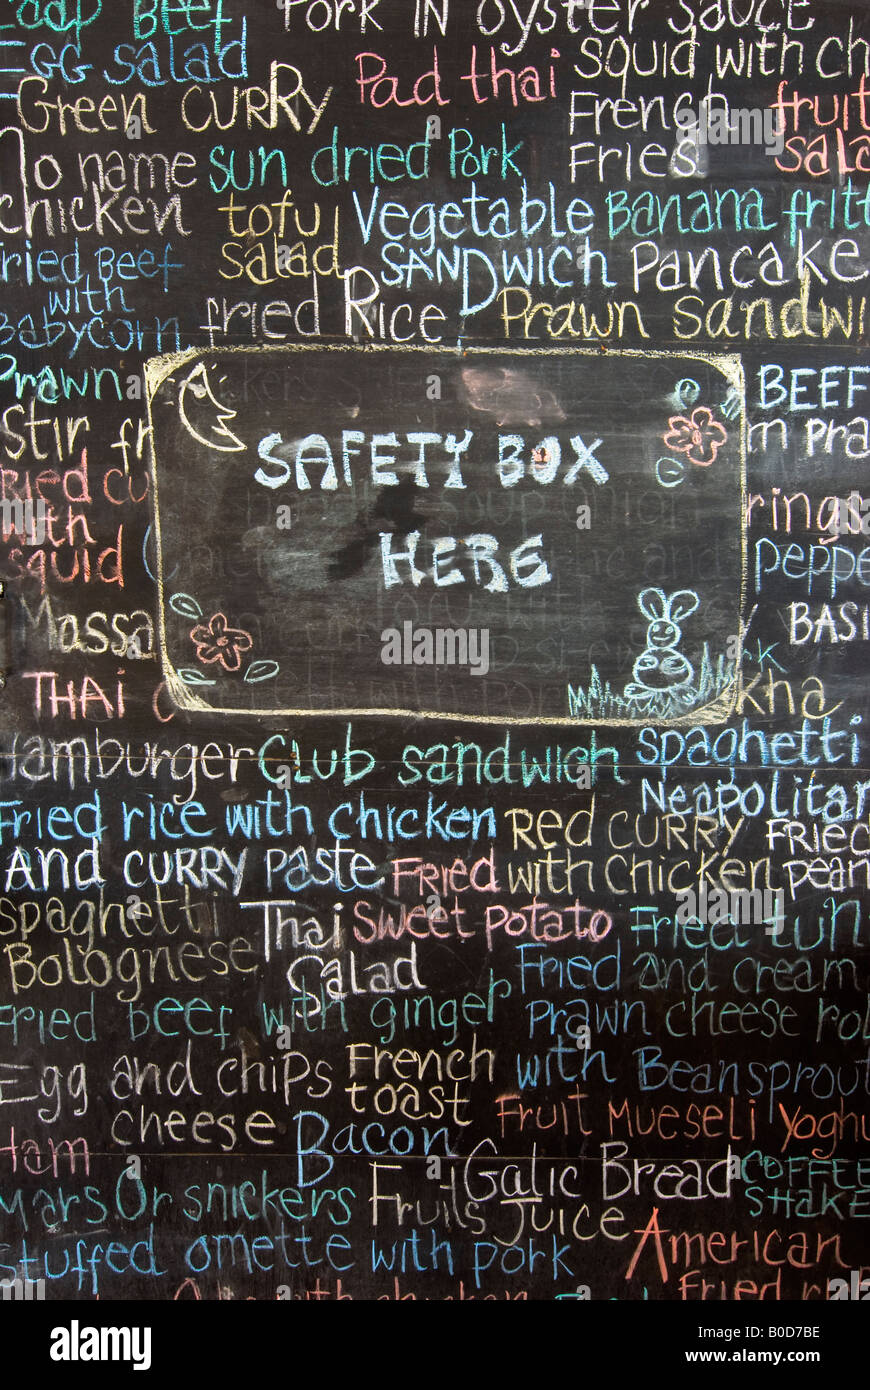 Beef Pork IN oyster sauce
EGG Salad Pad thai squid with
Green CURRY French fruit
No name sun dried Pork Fries
chicken tofu Vegetable Banana
Fried Beef salad SANDwich Pancake
with fried Rice Prawn
Babycorn
Prawn BEEF
Stir
SAFETY BOX
with rings
squid HERE
BASI
THAI kha
Hamburger Club sandwich spaghetti
Neapolitan
Fried rice with chicken RED CURRY FRIED
And CURRY PASTE Fried with chicken
spaghetti Thai Sweet potato Fried
Bolognese Salad Fried and cream
Fried Beef with ginger Prawn cheese
Egg and chips French with
toast
cheese Fruit Mueseli
Ham Bacon
Galic Bread COFFEE
Mars Or snickers Fruits Juice SHAKE
Stuffed omette with pork American
with chicken Fried
alamy
Image ID: B0D7BE
www.alamy.com